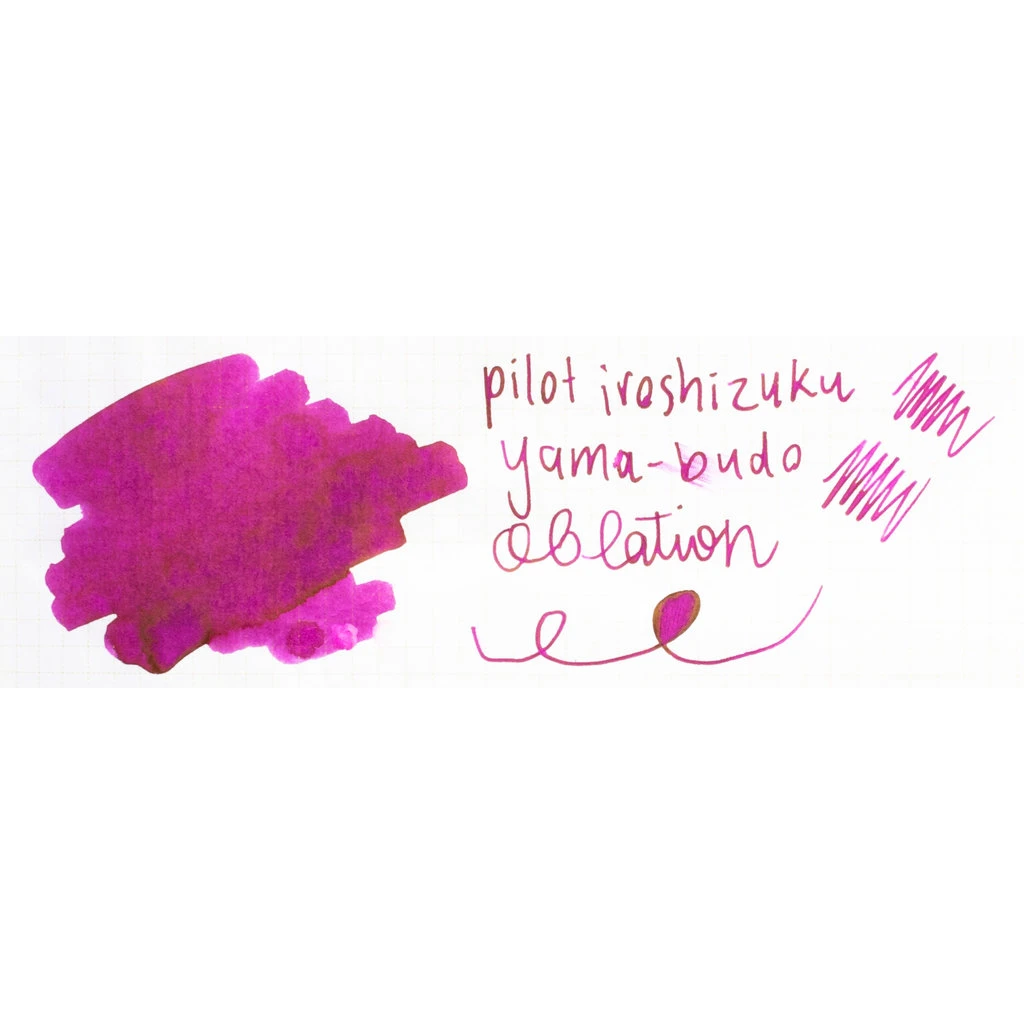 pilot iroshizuku
yama-budo
oblation